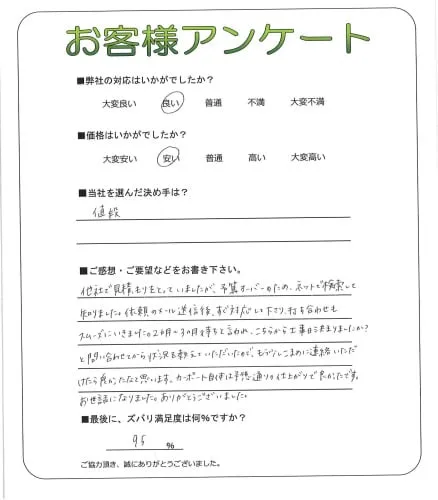 お客様アンケート
■弊社の対応はいかがでしたか？
大変良い 良い 普通 不満 大変不満
■価格はいかがでしたか？
大変安い 安い 普通 高い 大変高い
■当社を選んだ決め手は？
値段
■ご感想・ご要望などをお書き下さい。
他社で見積もりをとっていましたが、予算オーバーのため、ネットで検索して
知りました。依頼のメール送信後、すぐ対応して下さり、打ち合わせも
スムーズにいきました。2カ月〜3カ月待ちと言われ、こちらから工事日決まりましたか?
と問い合わせてから状況を教えていただいたので、もう少しこまめに連絡いただ
けたら良かったなと思います。カーポート自体は予想通りの仕上がりで良かったです。
お世話になりました。ありがとうございました。
■最後に、ズバリ満足度は何%ですか？
95 %
ご協力頂き、誠にありがとうございました。